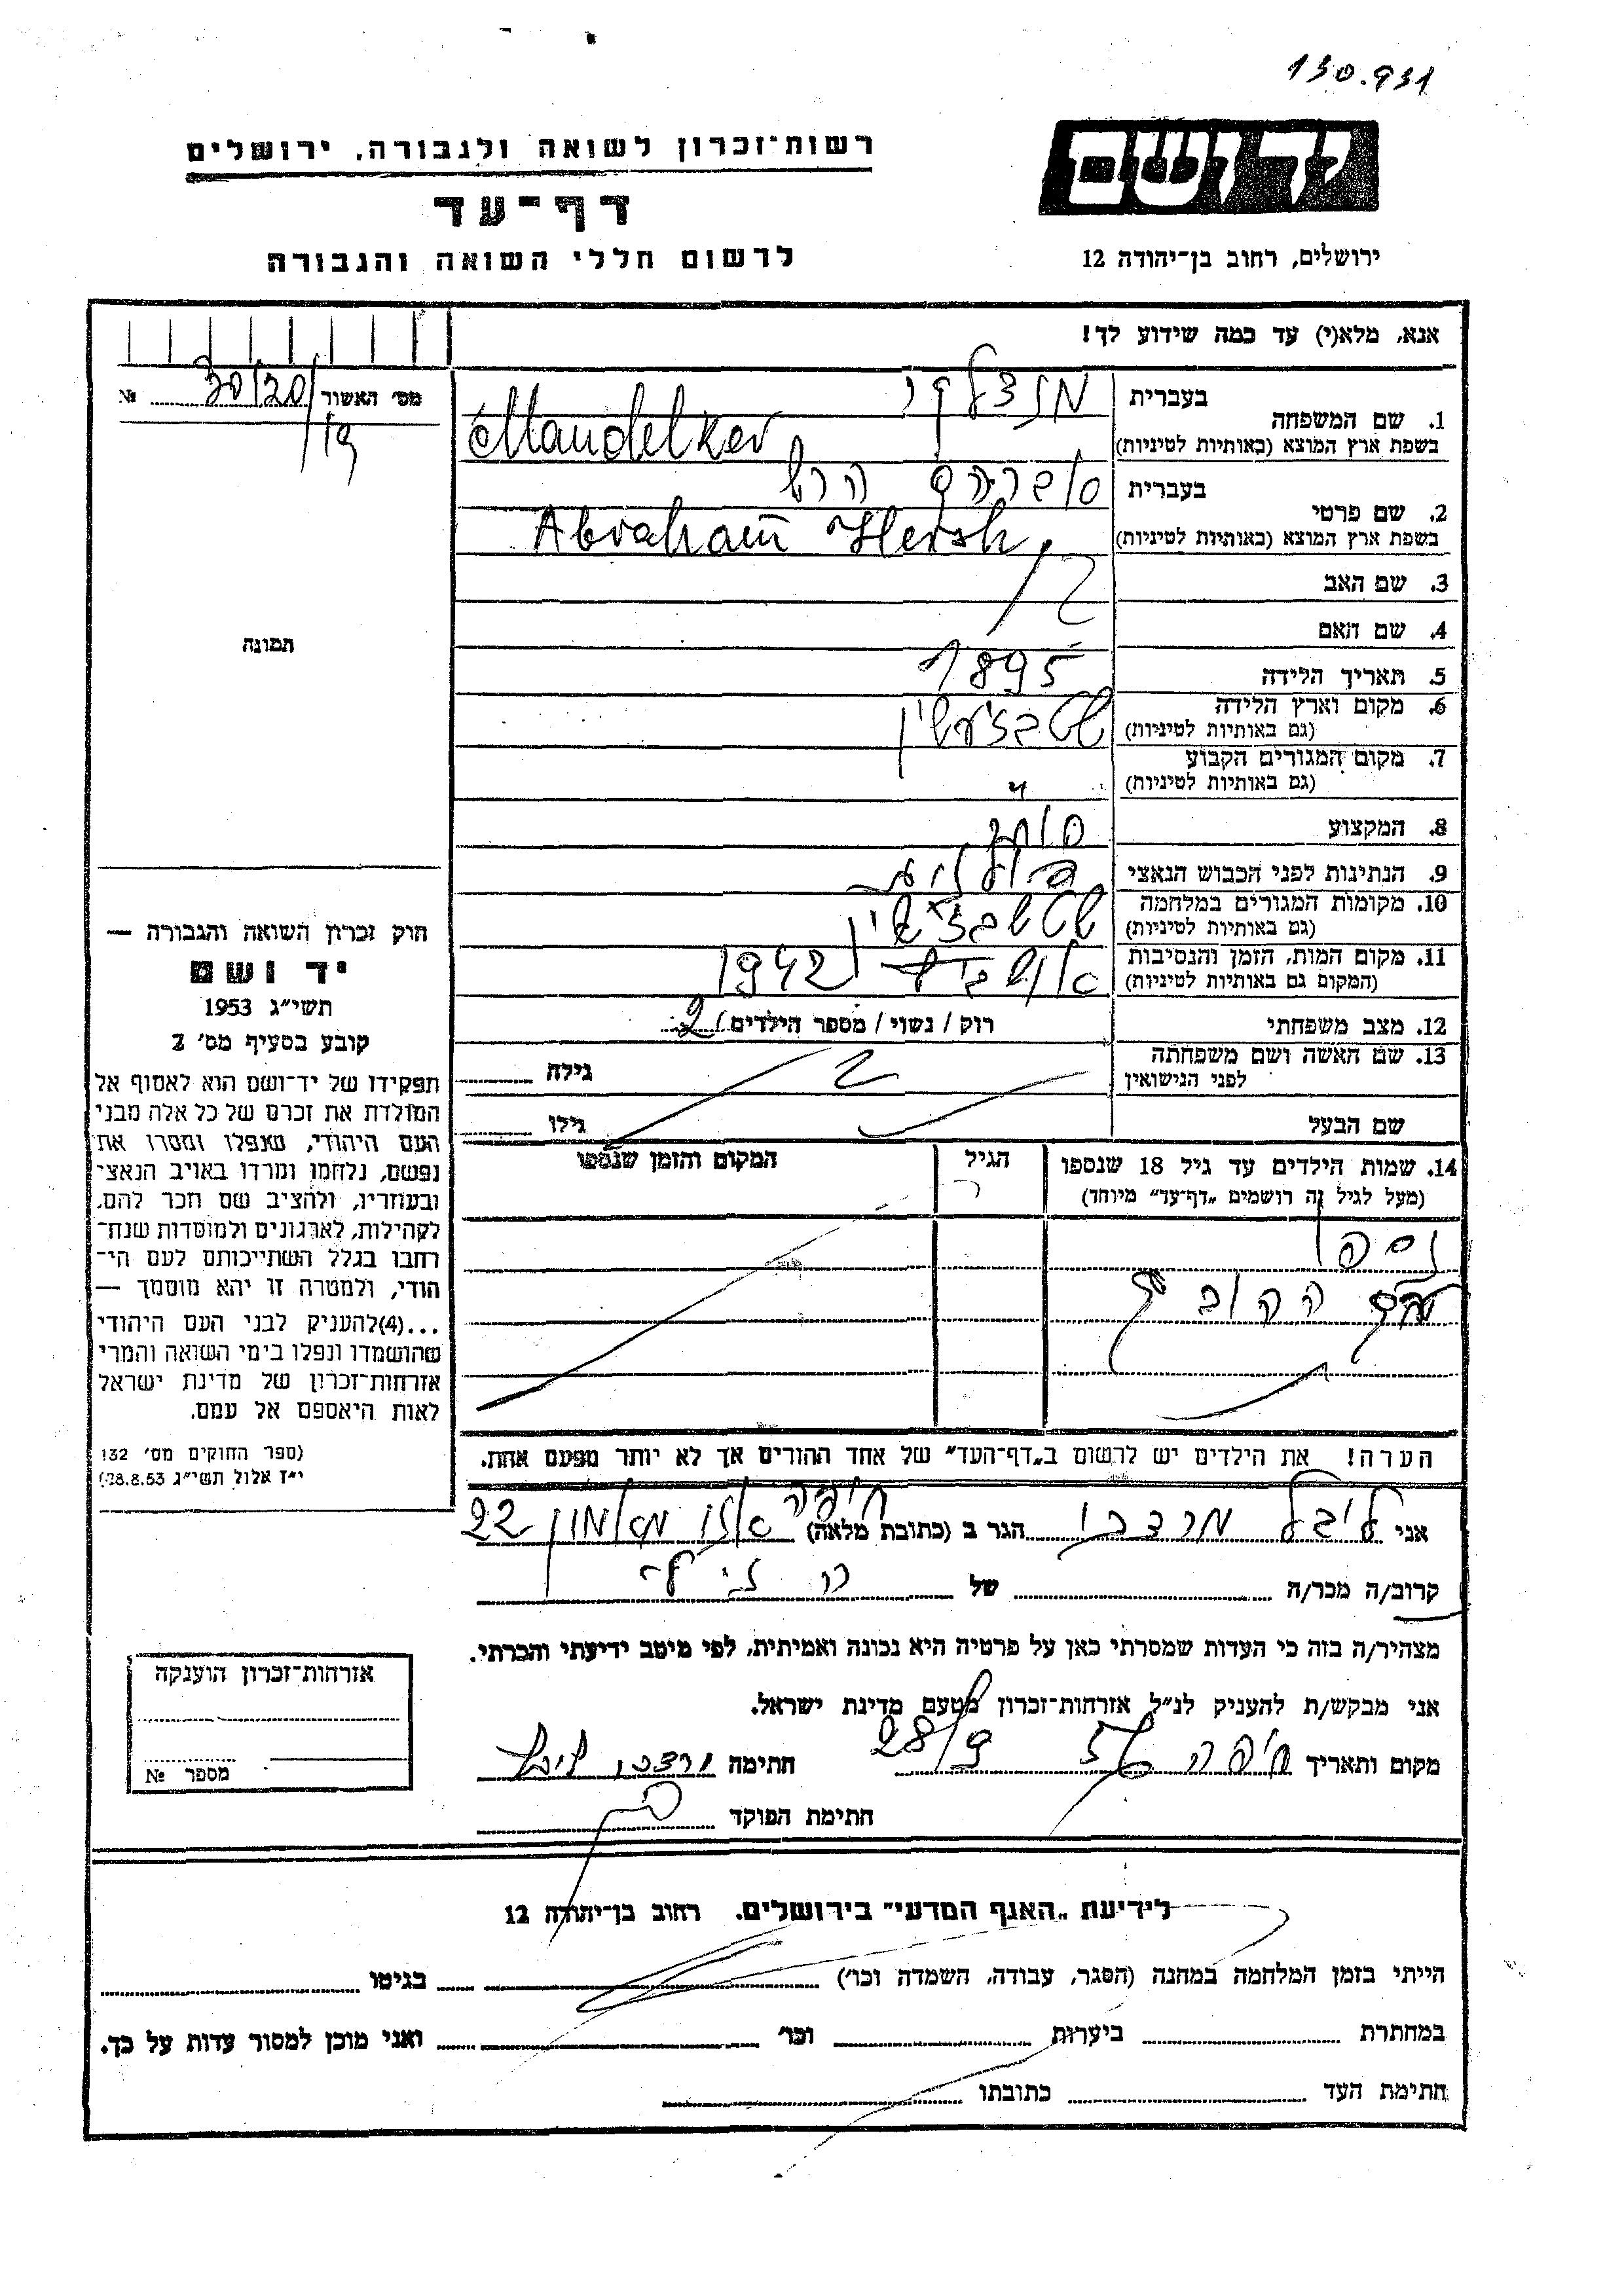 130.931
רשות־זכרון לשואה ולגבורה, ירושלים
יד ושם
דף־עד
לרשום חללי השואה והגבורה
ירושלים, רחוב בן־יהודה 12
אנא, מלא(י) עד כמה שידוע לך!
מס׳ האשור 30/20/19 №
1. שם המשפחה
בעברית
בשפת ארץ המוצא (באותיות לטיניות) Mandelker
2. שם פרטי
בעברית אברהם הרש
בשפת ארץ המוצא (באותיות לטיניות) Abraham Hersh
3. שם האב
4. שם האם
תמונה
5. תאריך הלידה 1895
6. מקום וארץ הלידה
(גם באותיות לטיניות)
7. מקום המגורים הקבוע
(גם באותיות לטיניות) "
8. המקצוע סוחר
9. הנתינות לפני הכבוש הנאצי
10. מקומות המגורים במלחמה
(גם באותיות לטיניות)
11. מקום המות, הזמן והנסיבות 1942
(המקום גם באותיות לטיניות)
12. מצב משפחתי רוק / נשוי / מספר הילדים / 2
13. שם האשה ושם משפחתה
לפני הנישואין
גילה
שם הבעל
גילו
14. שמות הילדים עד גיל 18 שנספו
(מעל לגיל זה רושמים „דף־עד״ מיוחד)
הגיל
המקום והזמן שנספו
נספה
הערה! את הילדים יש לרשום ב„דף־העד״ של אחד ההורים אך לא יותר מפעם אחת.
חוק זכרון השואה והגבורה —
יד ושם
תשי״ג 1953
קובע בסעיף מס׳ 2
תפקידו של יד־ושם הוא לאסוף אל
המולדת את זכרם של כל אלה מבני
העם היהודי, שנפלו ומסרו את
נפשם, נלחמו ומרדו באויב הנאצי
ובעוזריו, ולהציב שם וזכר להם,
לקהילות, לארגונים ולמוסדות שנח־
רחבו בגלל השתייכותם לעם הי־
הודי, ולמטרה זו יהא מוסמך —
...(4)להעניק לבני העם היהודי
שהושמדו ונפלו בימי השואה והמרי
אזרחות־זכרון של מדינת ישראל
לאות היאספם אל עמם.
(ספר החוקים מס׳ 132
י״ז אלול תשי״ג 28.8.53)
אני לובל מרדכי הגר ב (כתובת מלאה) חיפה 22
קרוב/ה מכר/ה של
מצהיר/ה בזה כי העדות שמסרתי כאן על פרטיה היא נכונה ואמיתית, לפי מיטב ידיעתי והכרתי.
אני מבקש/ת להעניק לנ״ל אזרחות־זכרון מטעם מדינת ישראל.
מקום ותאריך חיפה 28/9 חתימה
חתימת הפוקד
אזרחות־זכרון הוענקה
מספר №
לידיעת „האגף המדעי״ בירושלים. רחוב בן־יהודה 12
הייתי בזמן המלחמה במחנה (הסגר, עבודה, השמדה וכו׳) בגיטו
במחתרת ביערות וכו׳ ואני מוכן למסור עדות על כך.
חתימת העד כתובתו